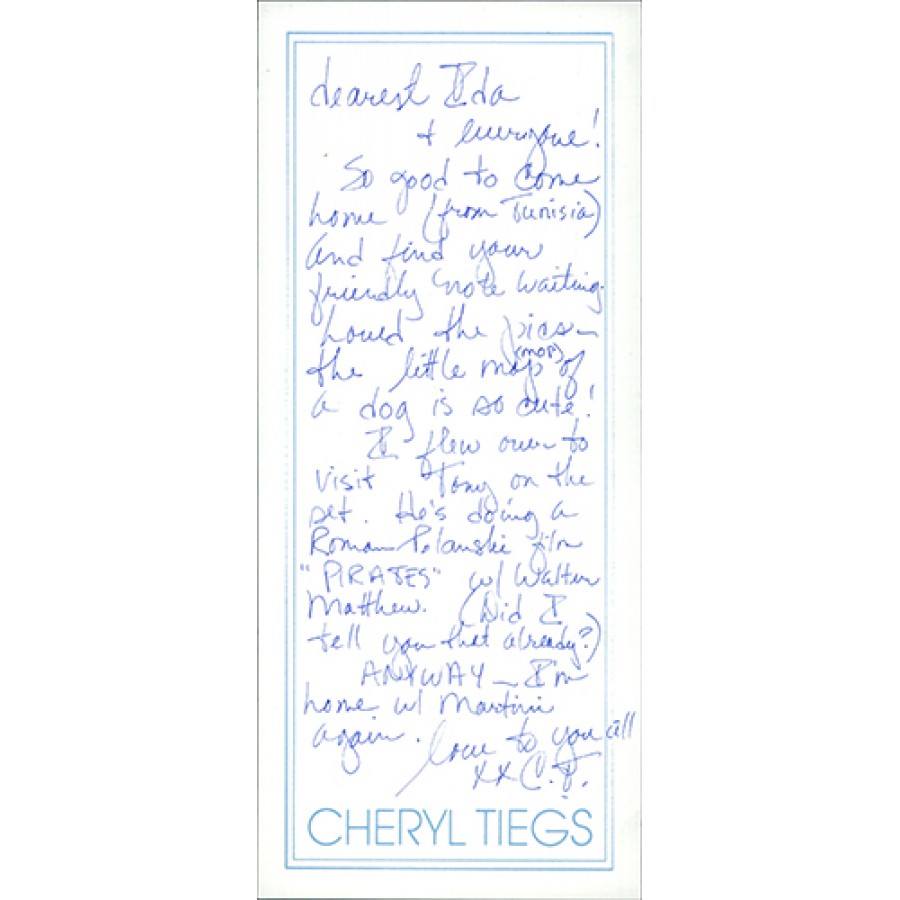 dearest Ida
+ everyone!
So good to come
home (from Tunisia)
and find your
friendly note waiting.
Loved the pics—
the little map (mop) of
a dog is so cute!
I flew over to
visit Tony on the
set. He's doing a
Roman Polanski film
"PIRATES" w/ Walter
Matthew. (Did I
tell you that already?)
ANYWAY — I'm
home w/ Martini
again. Love to you all
xx C.T.
CHERYL TIEGS